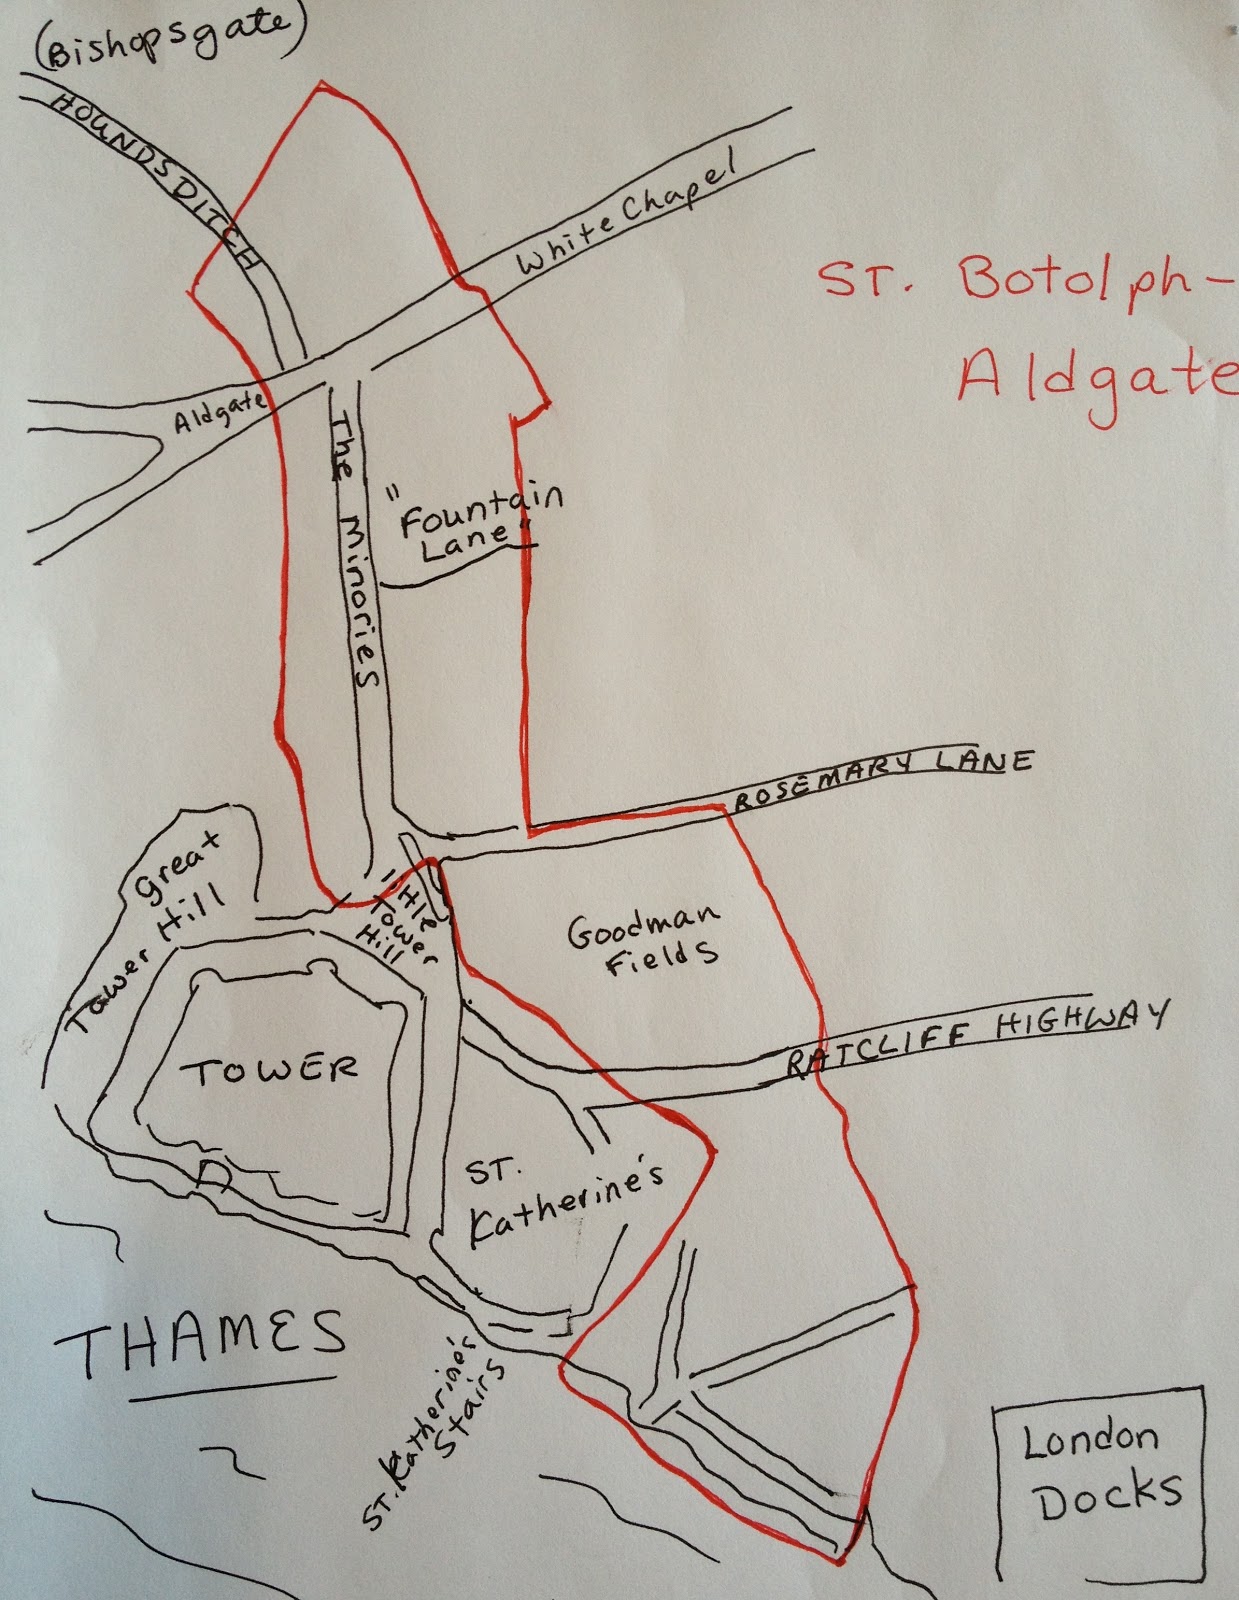 (Bishopsgate)
HOUNDSDITCH
White Chapel
ST. Botolph-
Aldgate
Aldgate
The Minories
"Fountain
Lane"
ROSEMARY LANE
Great
Tower Hill
little
Tower
Hill
Goodman
Fields
RATCLIFF HIGHWAY
TOWER
ST.
Katherine's
THAMES
ST. Katherine's
Stairs
London
Docks